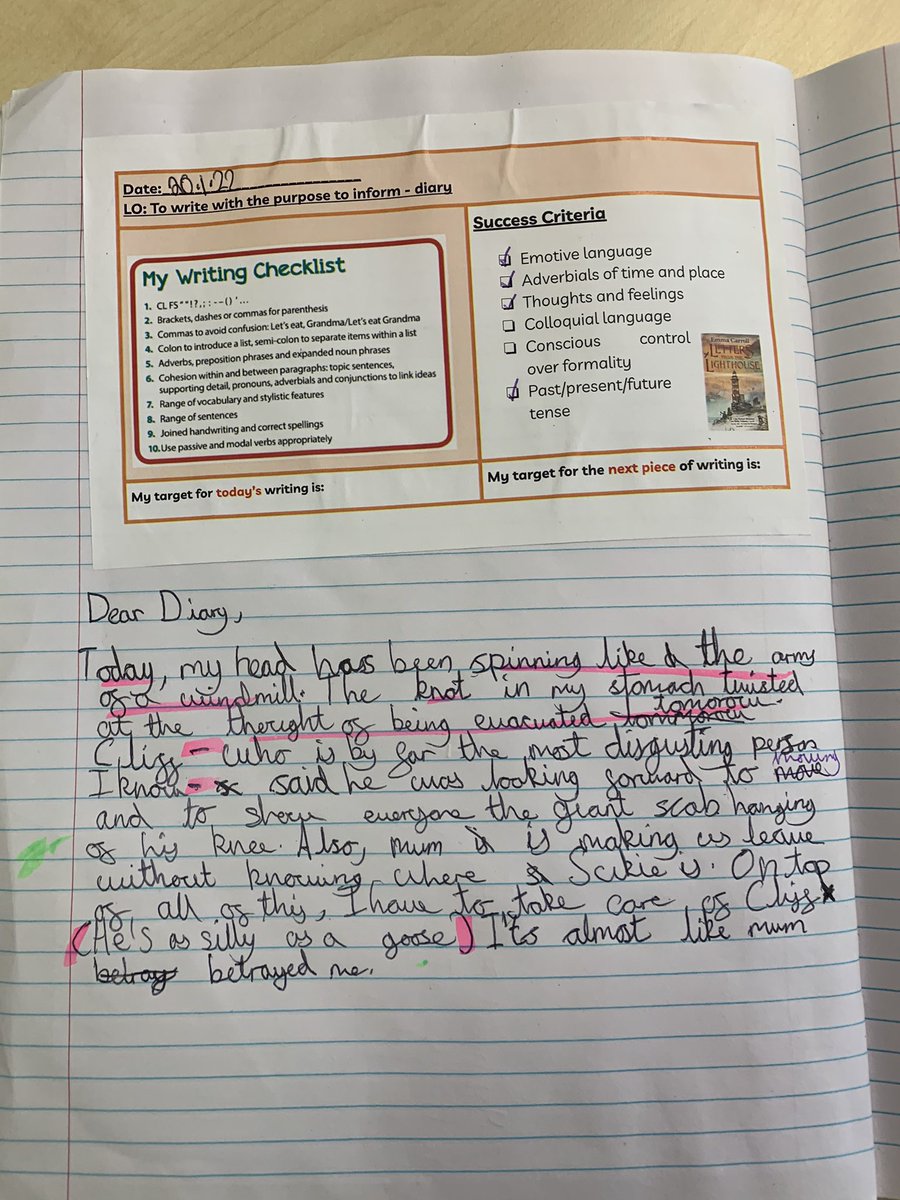 Date: 20.1.22
LO: To write with the purpose to inform - diary
My Writing Checklist
1. CLFS""!?,;:--()'...
2. Brackets, dashes or commas for parenthesis
3. Commas to avoid confusion: Let's eat, Grandma/Let's eat Grandma
4. Colon to introduce a list, semi-colon to separate items within a list
5. Adverbs, preposition phrases and expanded noun phrases
6. Cohesion within and between paragraphs: topic sentences,
supporting detail, pronouns, adverbials and conjunctions to link ideas
7. Range of vocabulary and stylistic features
8. Range of sentences
9. Joined handwriting and correct spellings
10. Use passive and modal verbs appropriately
My target for today's writing is:
Success Criteria
Emotive language
Adverbials of time and place
Thoughts and feelings
Colloquial language
Conscious control
over formality
Past/present/future
tense
Emma Carroll
LETTERS
FROM THE
LIGHTHOUSE
My target for the next piece of writing is:
Dear Diary,
Today, my head has been spinning like the army
of a windmill. The knot in my stomach twisted
at the thought of being evacuated tomorow.
Cliff - who is by far the most disgusting person
I know - said he was looking forward to moving
and to show everyone the giant scab hanging
of his knee. Also, mum is making us leave
without knowing where Sukie is. On top
of all of this, I have to take care of Cliff
(He's as silly as a goose) It's almost like mum
betrayed me.